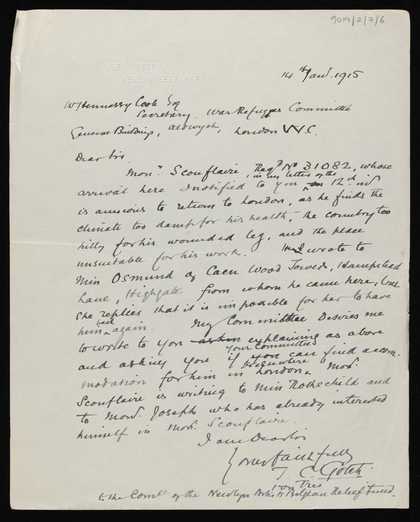 9019/2/7/6
14th Jan. 1915
W Hennessy Cook Esq
Secretary War Refugees Committee
General Buildings, Aldwych, London W.C.
Dear Sir
Monr Scouflaire, Regd No 31082, whose
arrival here I notified to you in my letter of the 12th inst
is anxious to return to London, as he finds the
climate too damp for his health, the country too
hilly for his wounded leg, and the place
unsuitable for his work. I wrote to
Miss Osmund of Caen Wood Towers, Hampstead
Lane, Highgate from whom he came here, but
she replies that it is impossible for her to have
him back again. My Committee desires me
to write to you explaining as above
and asking you if your committee can find accom-
modation for him elsewhere in London. Monr
Scouflaire is writing to Miss Rothschild and
to Monr Joseph who has already interested
himself in Monr Scouflaire.
I am Dear Sir
Yours faithfully
T C Gotch
to the Comtee of the Newlyn Artists Belgian Relief Fund.